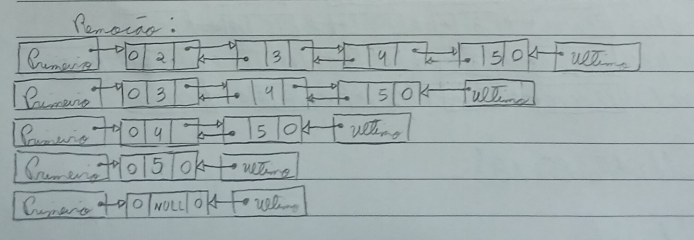 Remoção:
Primeiro 0 2 3 4 5 0 ultimo
Primeiro 0 3 4 5 0 ultimo
Primeiro 0 4 5 0 ultimo
Primeiro 0 5 0 ultimo
Primeiro 0 NULL 0 ultimo